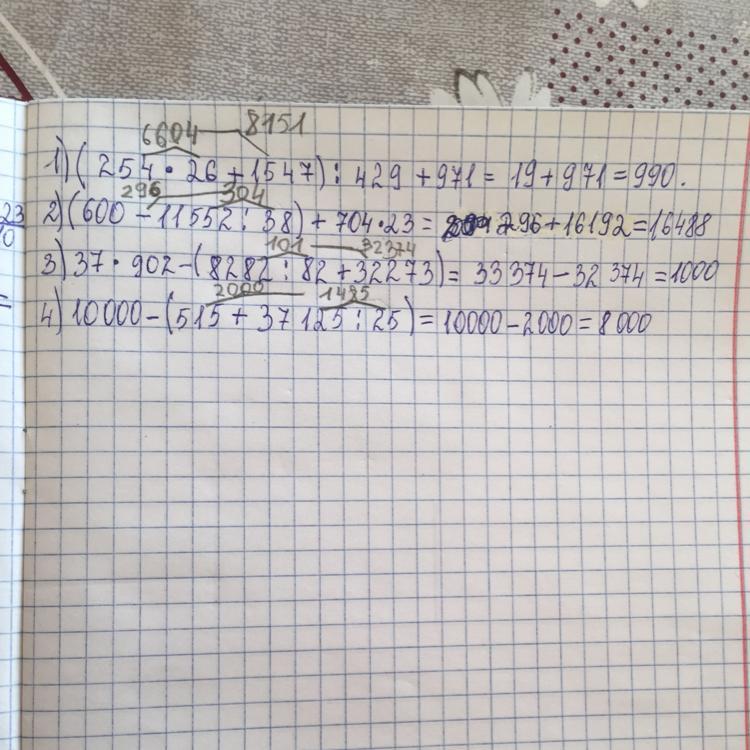 6604 8151
1) (254 · 26 + 1547) : 429 + 971 = 19 + 971 = 990.
296 304
23
2) (600 - 11552 : 38) + 704 · 23 = 296 + 16192 = 16488
10
101 32374
3) 37 · 902 - (8282 : 82 + 32273) = 33374 - 32374 = 1000
2000 1485
=
4) 10000 - (515 + 37125 : 25) = 10000 - 2000 = 8000